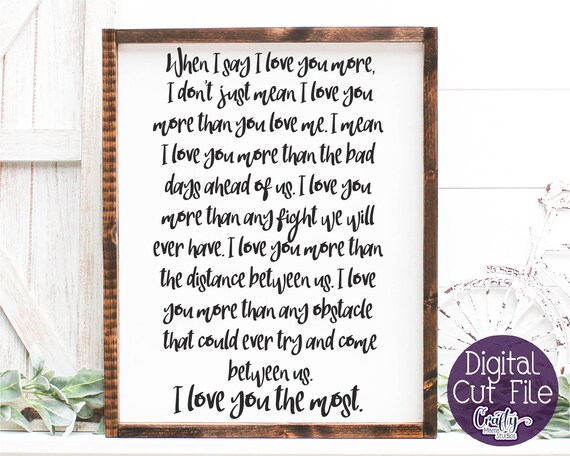 When I say I love you more,
I don't just mean I love you
more than you love me. I mean
I love you more than the bad
days ahead of us. I love you
more than any fight we will
ever have. I love you more than
the distance between us. I love
you more than any obstacle
that could ever try and come
between us.
I love you the most.
Digital
Cut File
Crafty
Mama Studios